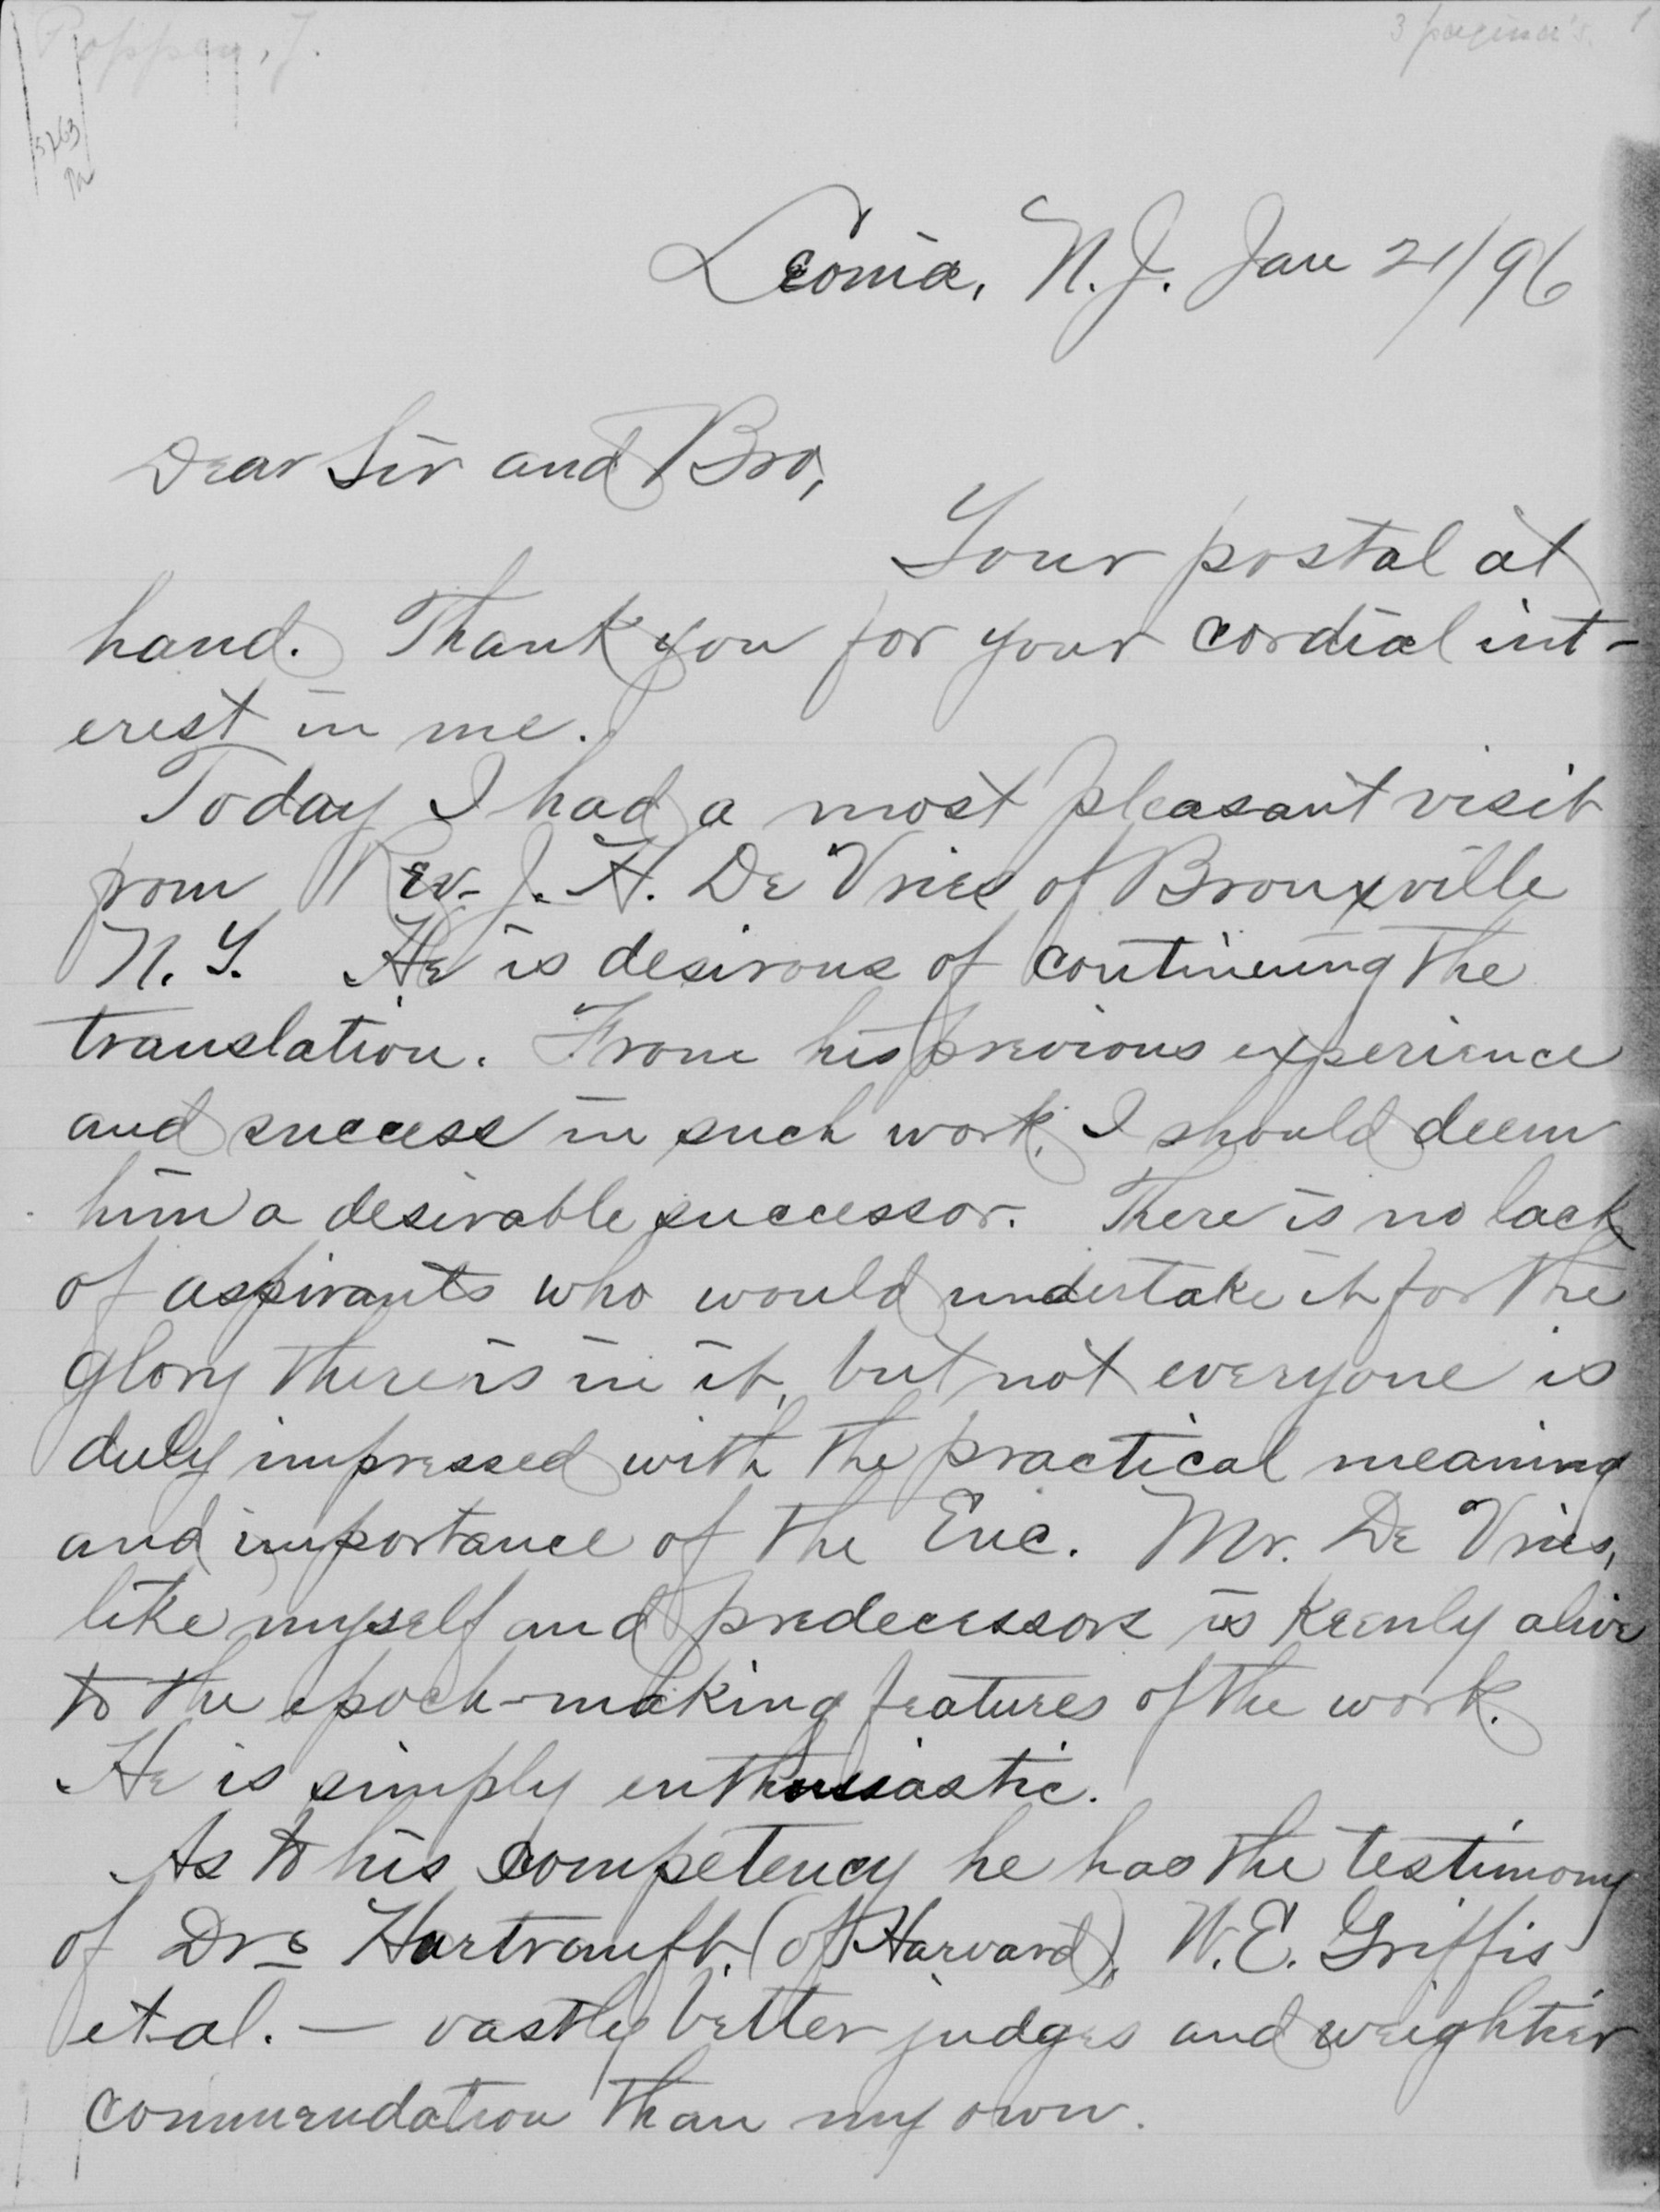 Poppen, J.
3 pagina's. 1
5263
Leonia, N.J. Jan 21/96
Dear Sir and Bro,
Your postal at
hand. Thank you for your cordial int-
erest in me.
Today I had a most pleasant visit
from Rev. J. H. De Vries of Bronxville
N.Y. He is desirous of continuing the
translation. From his previous experience
and success in such work, I should deem
him a desirable successor. There is no lack
of aspirants who would undertake it for the
glory there is in it, but not everyone is
duly impressed with the practical meaning
and importance of the Enc. Mr. De Vries,
like myself and predecessors is keenly alive
to the epoch-making features of the work.
He is simply enthusiastic.
As to his competency he has the testimony
of Drs Hartranft, (of Harvard), W.E. Griffis
et al. — vastly better judges and weightier
commendation than my own.